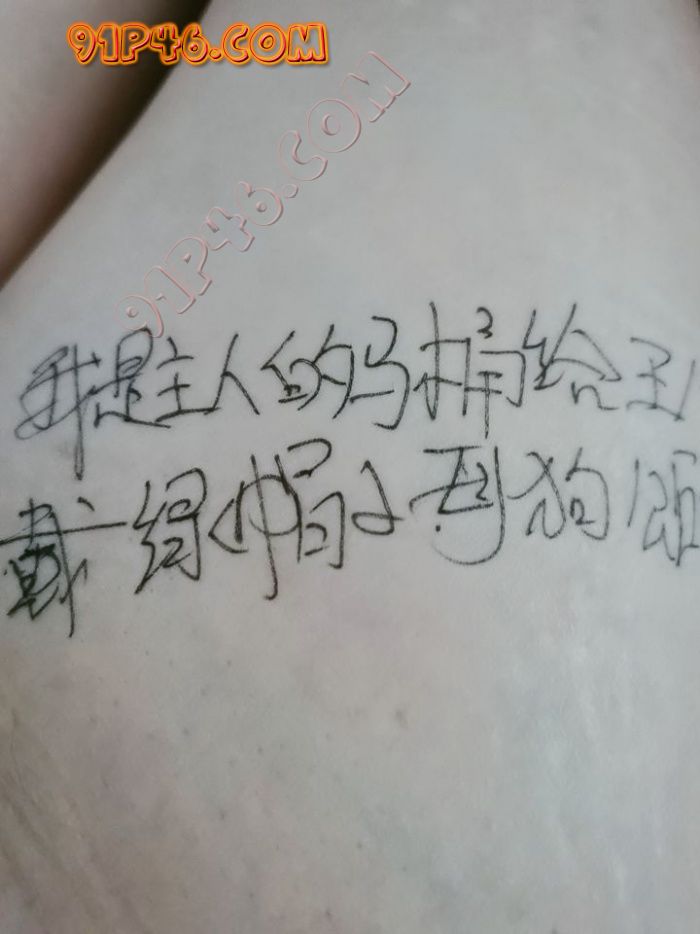 91P46.COM
91P46.COM
我是主人的马桶给主
戴绿帽 狗